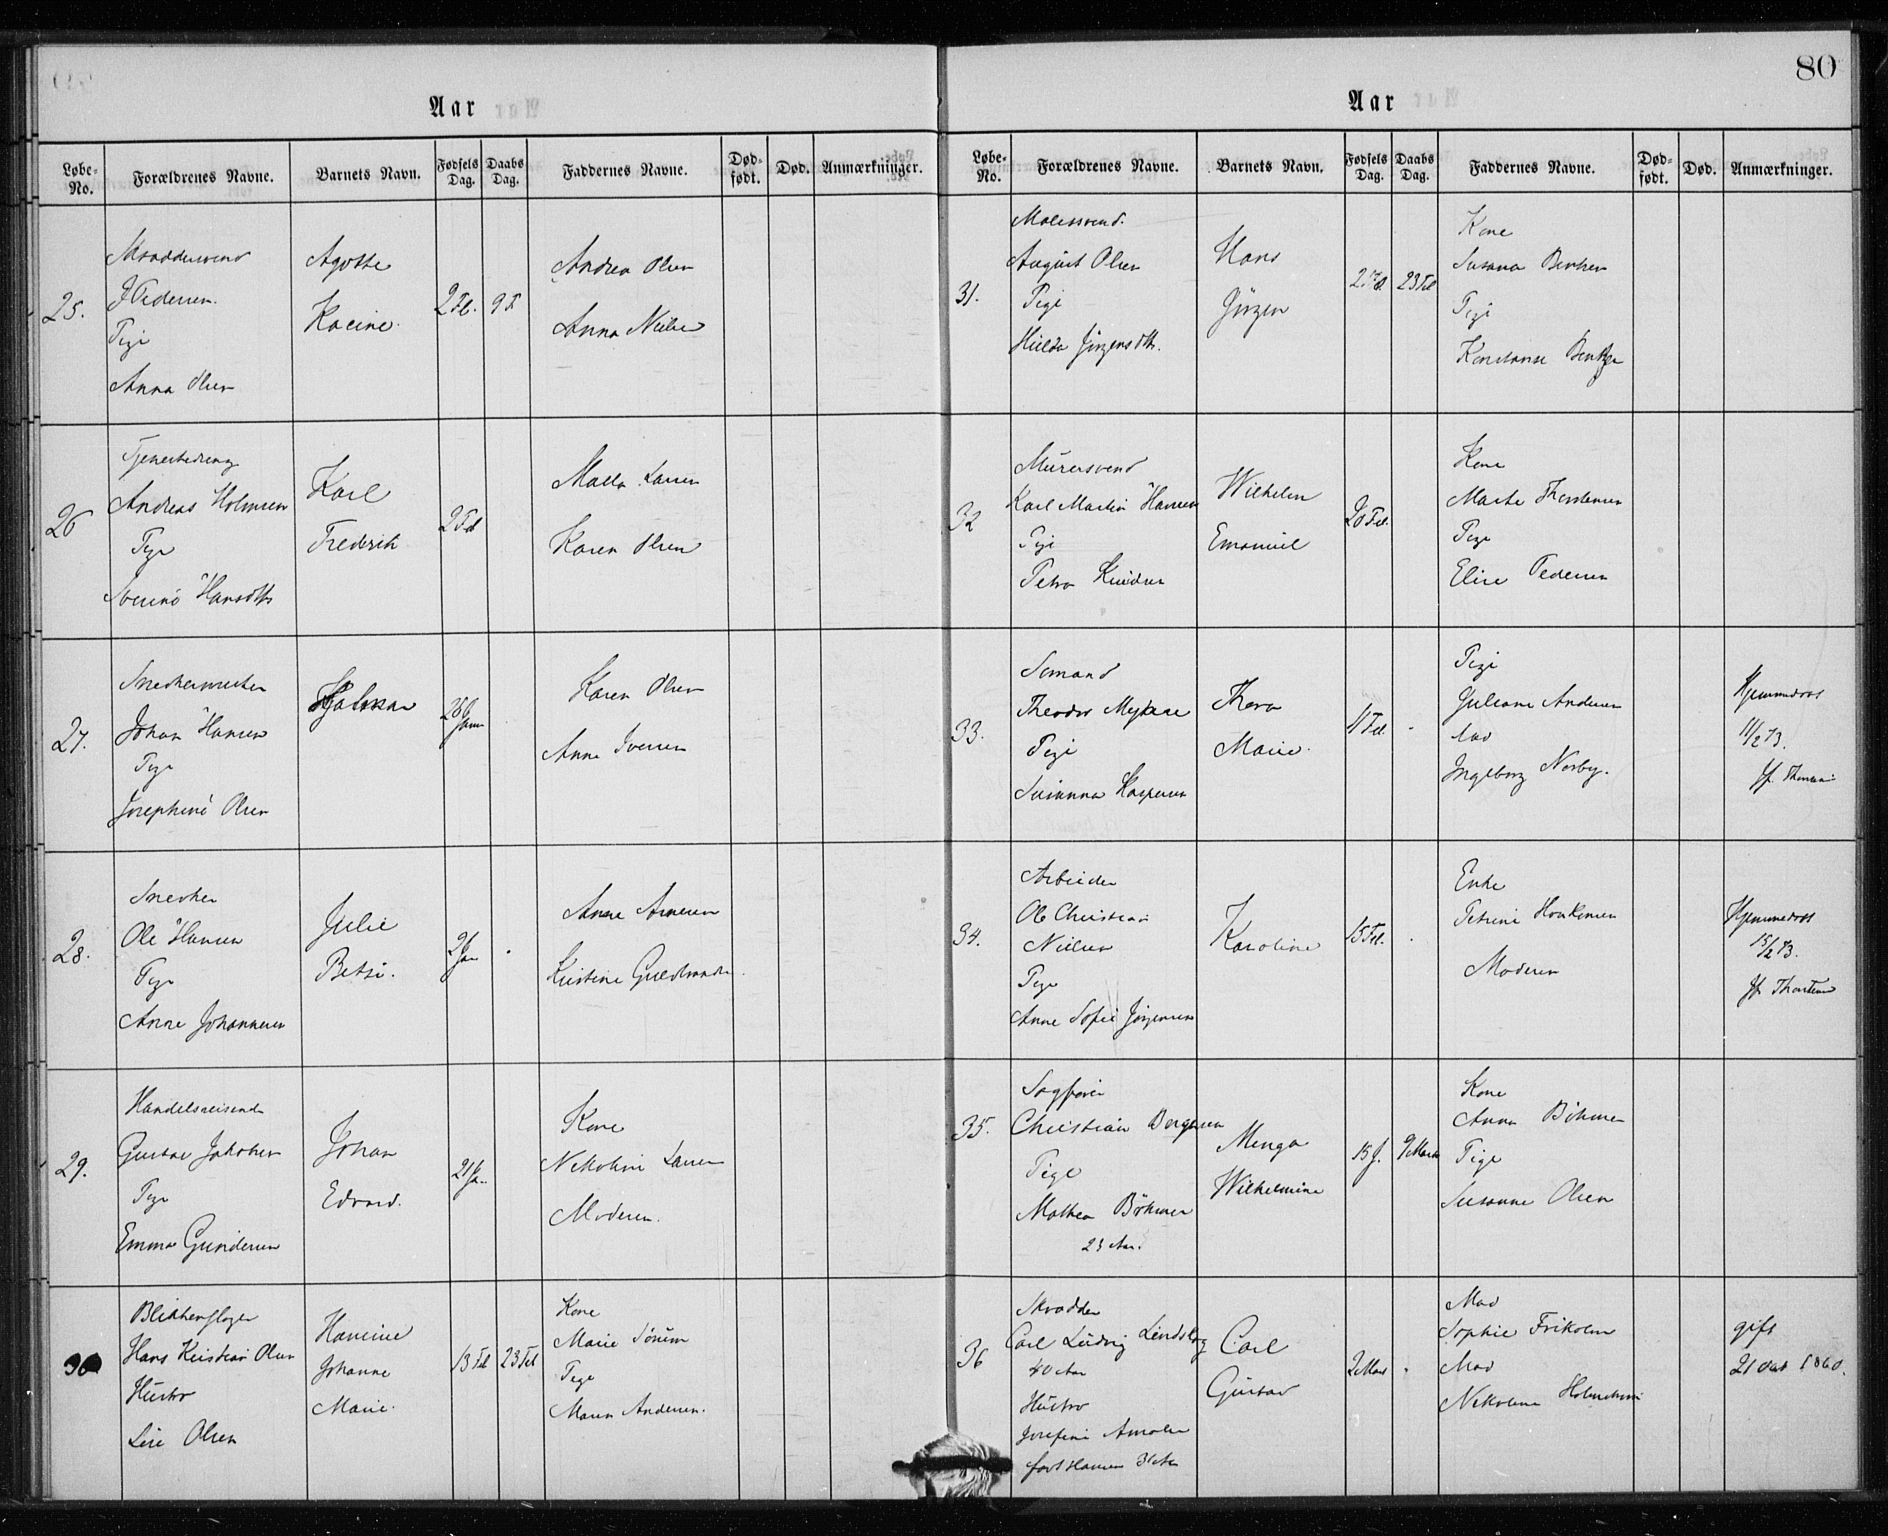 80
Aar
Løbe-No. Forældrenes Navne. Barnets Navn. Fødsels Dag. Daabs Dag. Faddernes Navne. Død-født. Død. Anmærkninger.
25.
J Pedersen.
Pige
Anna Olsen
Agothe
2 Feb. 9 F
Andrea Olsen
Anna Nielsen
26
Andreas Holmsen
Pige
Karl
Frederik
2 Feb
Karen Olsen
27.
Snedkermester
Johan Hansen
Pige
Josephine Olsen
Hjalmar
Karen Olsen
Anne Iversen
28.
Snedker
Ole Hansen
Pige
Anne Johannesen
Julie
Betsi.
2 Jan
Anne Arnesen
29.
Handelsreisende
Gustav Jakobsen
Pige
Emma Gundersen
Johan
Edvard.
21 Ja.
Kone
Nikoline Larsen
Moderen.
30
Hans Kristian Olsen
Hustro
Lise Olsen
Johanne
Marie.
13 Feb 23 Feb
Kone
Marie
Pige
Maren Andersen.
Aar
Løbe-No. Forældrenes Navne. Barnets Navn. Fødsels Dag. Daabs Dag. Faddernes Navne. Død-født. Død. Anmærkninger.
31.
Malersvend.
August Olsen
Pige
Hilda Jörgensdtr.
Hans
Jörgen
23 Feb
Kone
Susana
Pige
32
Murersvend
Karl Martin Hansen
Pige
Petra
Wilhelm
Emanuel
Kone
Marte Thorstensen
Pige
Elise Pedersen
33.
Sömand
Theodor
Pige
Susanna Kaspersen
Thora
Marie.
11 Feb.
Pige
Juliane Andersen
Mad
Ingeborg Norby.
Hjemmedöbt
11/2 73.
34.
Arbeider
Ole Christian
Nielsen
Pige
Anne Sofie Jörgensen
Karoline
15 Feb.
Enke
Petrine Haakensen
Moderen
Hjemmedöbt
15/2 73.
35.
Sagförer
Christian
Pige
Mathea Böhmer
23 Aar.
Menga
Wilhelmine
15 J. 9 Marts
Kone
Anna Böhmer
Pige
Susanne Olsen
36
Skrædder
Carl Ludvig Lindsberg
40 Aar
Hustro
Josefine
född Hansen 31 Aar
Carl
Gustav
2 Mars
Mad
Sophie
Mad
Nikoline
gift
21 Oct 1860.